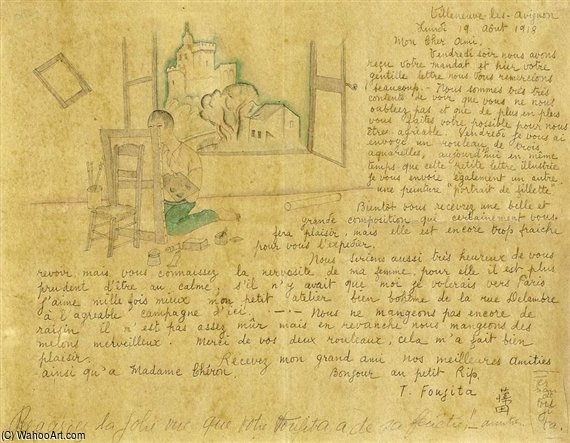 Villeneuve-les-Avignon
Lundi 19 Août 1918
Mon Cher Ami.
Vendredi soir nous avons
reçu votre mandat et hier votre
gentille lettre nous vous remercions
beaucoup. - Nous sommes très très
contents de voir que vous ne nous
oubliez pas et que de plus en plus
vous faites votre possible pour nous
être agréable. Vendredi je vous ai
envoyé un rouleau de trois
aquarelles, aujourd'hui en même
temps que cette petite lettre illustrée
je vous envoie également un autre
une peinture "portrait de fillette"
Bientôt vous recevrez une belle et
grande composition qui certainement vous
fera plaisir, mais elle est encore trop fraîche
pour vous l'expédier.
Nous serions aussi très heureux de vous
revoir mais vous connaissez la nervosité de ma femme, pour elle il est plus
prudent d'être au calme, s'il n'y avait que moi je volerais vers Paris
j'aime mille fois mieux mon petit atelier bien bohème de la rue Delambre
à l'agréable campagne d'ici. --- Nous ne mangeons pas encore de
raisin il n'est pas assez mûr mais en revanche nous mangeons des
melons merveilleux. Merci de vos deux rouleaux, cela m'a fait bien
plaisir. Recevez mon grand ami nos meilleures Amitiés
ainsi qu'à Madame Chéron. Bonjour au petit Rip.
T. Foujita 藤田
la jolie vue que votre Foujita a de sa fenêtre!
© WahooArt.com